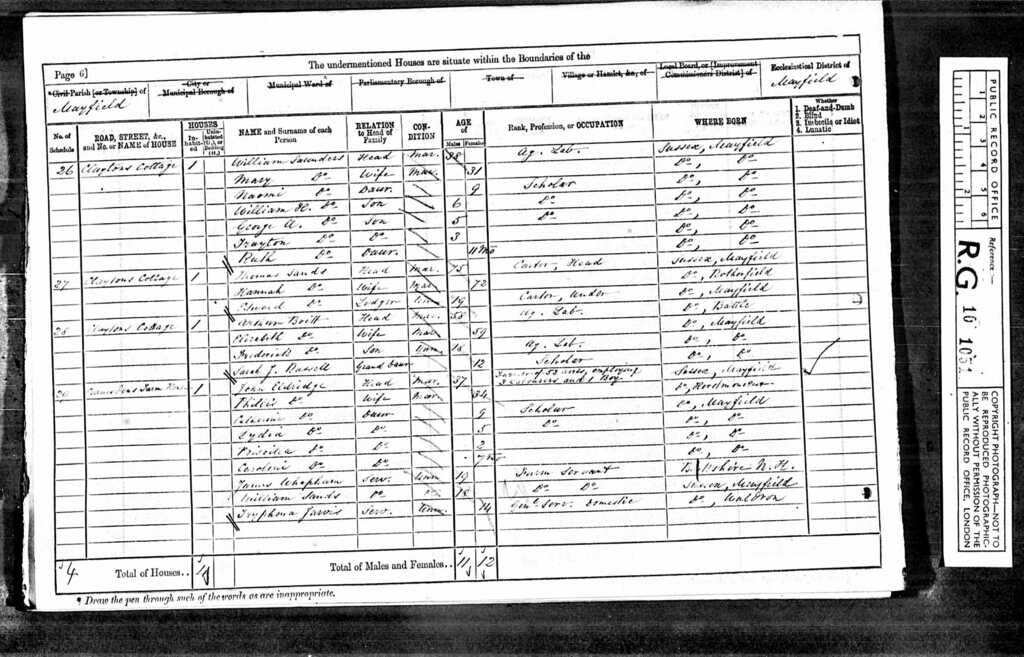 Page 6]
The undermentioned Houses are situate within the Boundaries of the
Civil Parish [or Township] of
City or Municipal Borough of
Municipal Ward of
Parliamentary Borough of
Town of
Village or Hamlet, &c., of
Local Board, or [Improvement Commissioners District] of
Ecclesiastical District of
Mayfield
Mayfield
No. of Schedule
ROAD, STREET, &c., and No. or NAME of HOUSE
HOUSES
In-habit-ed
Unin-habited (U.), or Building (B.)
NAME and Surname of each Person
RELATION to Head of Family
CON-DITION
AGE of
Males
Females
Rank, Profession, or OCCUPATION
WHERE BORN
Whether
1. Deaf-and-Dumb
2. Blind
3. Imbecile or Idiot
4. Lunatic
26 Claytons Cottage 1 William Saunders Head Mar. 38 Ag. Lab. Sussex, Mayfield
Mary Do Wife Mar. 31 Do, Do
Naomi Do Daur. 9 Scholar Do, Do
William H. Do Son 6 Do Do, Do
George A. Do Son 5 Do Do, Do
Do Do 3 Do, Do
Ruth Do Daur. 11 Mo Do, Do
27 Claytons Cottage 1 Thomas Sands Head Mar. 75 Carter, Head Sussex, Mayfield
Hannah Do Wife Mar. 72 Do, Rotherfield
Edward Do Lodger Unm 19 Carter, Under Do, Mayfield
28 Claytons Cottage 1 Britt Head Mar. 58 Ag. Lab. Do, Battle
Elizabeth Do Wife Mar. 59 Do, Mayfield
Frederick Do Son Unm 18 Ag. Lab. Do, Do
Sarah J. Russell Grand Daur 12 Scholar Do, Do
29 Farm House 1 John Eldridge Head Mar. 37 Farmer of 52 acres, employing 2 labourers and 1 Boy Sussex, Mayfield
Do Wife Mar. 34 Do, Herstmonceux
Do Daur 9 Scholar Do, Mayfield
Lydia Do Do 5 Do Do, Do
Priscilla Do Do 2 Do, Do
Caroline Do Do 7 Mo Do, Do
James Whapham Serv. Unm 19 Farm Servant N. K.
William Sands Do Do 18 Do Do Sussex, Mayfield
Tryphena Jarvis Serv. Unm. 14 Genl Serv. Domestic Do, Waldron
4 Total of Houses.. 4
Total of Males and Females.. 11 12
* Draw the pen through such of the words as are inappropriate.
PUBLIC RECORD OFFICE
1 2 3 4 5 6
1 2
Reference:-
R.G. 10
COPYRIGHT PHOTOGRAPH-NOT TO BE REPRODUCED PHOTOGRAPHIC-ALLY WITHOUT PERMISSION OF THE PUBLIC RECORD OFFICE, LONDON